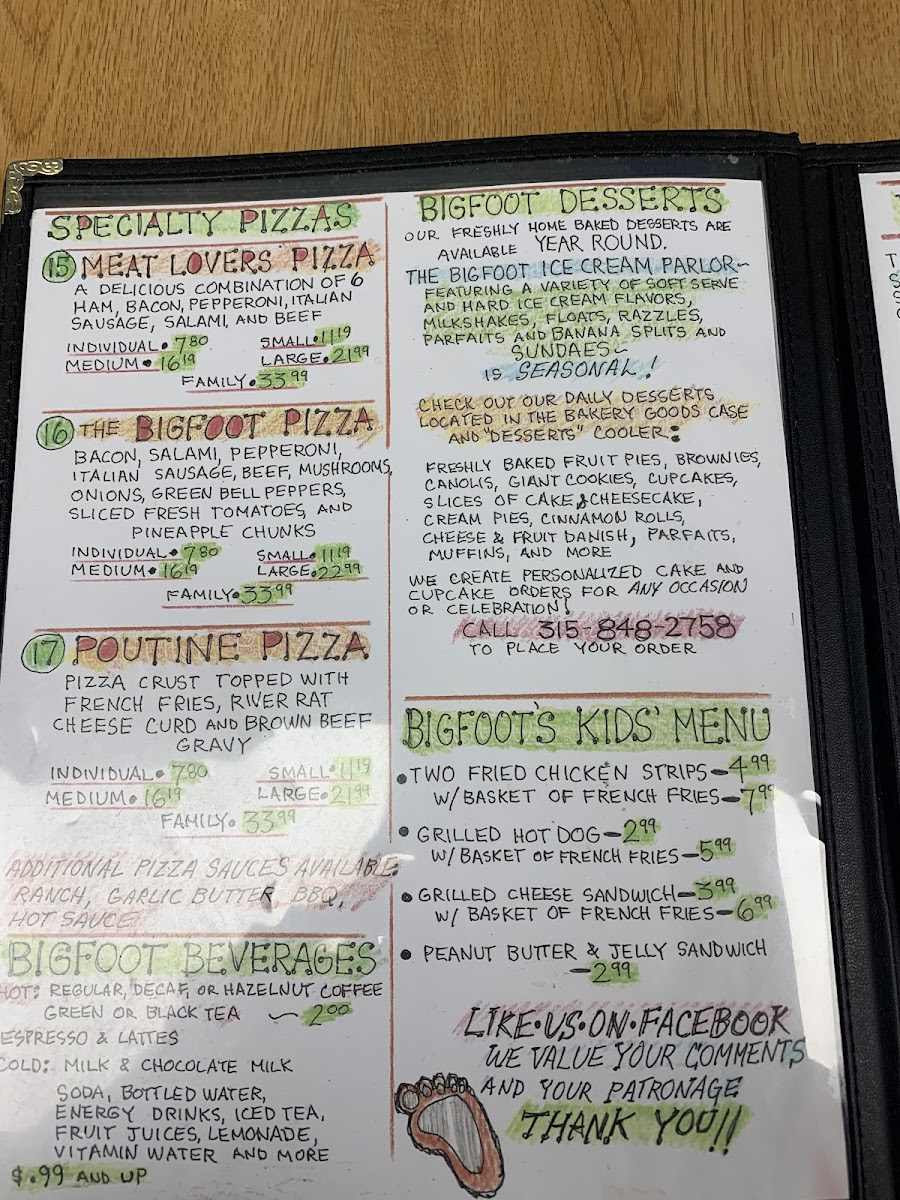 SPECIALTY PIZZAS
15 MEAT LOVERS' PIZZA
A DELICIOUS COMBINATION OF 6
HAM, BACON, PEPPERONI, ITALIAN
SAUSAGE, SALAMI, AND BEEF
INDIVIDUAL • 7.80 SMALL • 11.19
MEDIUM • 16.19 LARGE • 21.99
FAMILY • 33.99
16 THE BIGFOOT PIZZA
BACON, SALAMI, PEPPERONI,
ITALIAN SAUSAGE, BEEF, MUSHROOMS,
ONIONS, GREEN BELL PEPPERS,
SLICED FRESH TOMATOES, AND
PINEAPPLE CHUNKS
INDIVIDUAL • 7.80 SMALL • 11.19
MEDIUM • 16.19 LARGE • 22.99
FAMILY • 33.99
17 POUTINE PIZZA
PIZZA CRUST TOPPED WITH
FRENCH FRIES, RIVER RAT
CHEESE CURD AND BROWN BEEF
GRAVY
INDIVIDUAL • 7.80 SMALL • 11.19
MEDIUM • 16.19 LARGE • 21.99
FAMILY • 33.99
ADDITIONAL PIZZA SAUCES AVAILABLE:
RANCH, GARLIC BUTTER, BBQ,
HOT SAUCE
BIGFOOT BEVERAGES
HOT: REGULAR, DECAF, OR HAZELNUT COFFEE
GREEN OR BLACK TEA ~ 2.00
ESPRESSO & LATTES
COLD: MILK & CHOCOLATE MILK
SODA, BOTTLED WATER,
ENERGY DRINKS, ICED TEA,
FRUIT JUICES, LEMONADE,
VITAMIN WATER AND MORE
$.99 AND UP
BIGFOOT DESSERTS
OUR FRESHLY HOME BAKED DESSERTS ARE
AVAILABLE YEAR ROUND.
THE BIGFOOT ICE CREAM PARLOR~
FEATURING A VARIETY OF SOFT SERVE
AND HARD ICE CREAM FLAVORS,
MILKSHAKES, FLOATS, RAZZLES,
PARFAITS AND BANANA SPLITS AND
SUNDAES~
IS SEASONAL!
CHECK OUT OUR DAILY DESSERTS
LOCATED IN THE BAKERY GOODS CASE
AND "DESSERTS" COOLER:
FRESHLY BAKED FRUIT PIES, BROWNIES,
CANOLIS, GIANT COOKIES, CUPCAKES,
SLICES OF CAKE & CHEESECAKE,
CREAM PIES, CINNAMON ROLLS,
CHEESE & FRUIT DANISH, PARFAITS,
MUFFINS, AND MORE
WE CREATE PERSONALIZED CAKE AND
CUPCAKE ORDERS FOR ANY OCCASION
OR CELEBRATION!
CALL 315-848-2758
TO PLACE YOUR ORDER
BIGFOOT'S KIDS' MENU
• TWO FRIED CHICKEN STRIPS – 4.99
W/ BASKET OF FRENCH FRIES – 7.99
• GRILLED HOT DOG – 2.99
W/ BASKET OF FRENCH FRIES – 5.99
• GRILLED CHEESE SANDWICH – 3.99
W/ BASKET OF FRENCH FRIES – 6.99
• PEANUT BUTTER & JELLY SANDWICH
– 2.99
LIKE•US•ON•FACEBOOK
WE VALUE YOUR COMMENTS
AND YOUR PATRONAGE
THANK YOU!!